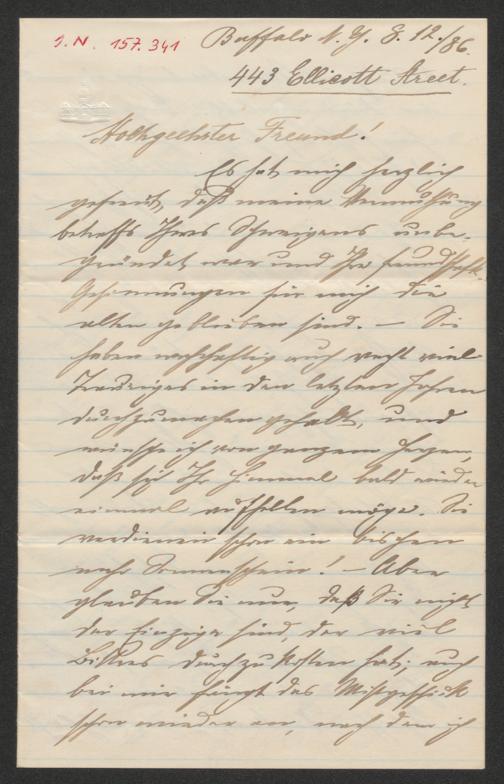 I.N. 157.341
Buffalo N.Y. 8.12./86.
443 Ellicott Street.
Hochgeehrter Freund!
Es hat mich herzlich
gefreut, daß meine Vermuthung
betreffs Ihres Schweigens unbe-
gründet war und Ihre freundschaftl.
Gesinnungen für mich die
alten geblieben sind. — Sie
haben wahrhaftig auch recht viel
Trauriges in den letzten Jahren
durchzumachen gehabt, und
wünsche ich von ganzem Herzen,
daß sich Ihr Himmel bald wieder
einmal aufhellen möge. Sie
verdienen schon ein bischen
mehr Sonnenschein! — Aber
glauben Sie nur, daß Sie nicht
der Einzige sind, der viel
Bittres durchzukosten hat; auch
bei mir fängt das Mißgeschick
schon wieder an, nach dem ich